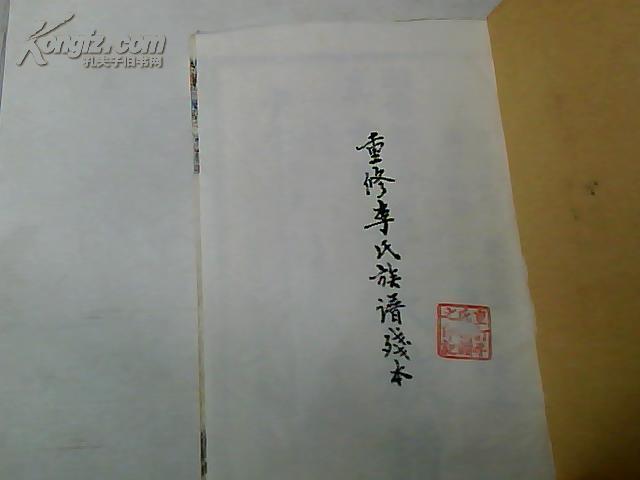 Kongfz.com
孔夫子旧书网
重修李氏族谱残本